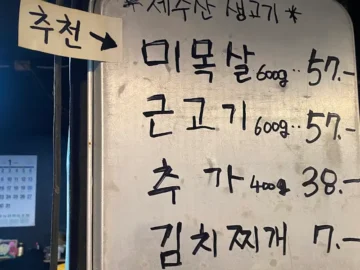 추천 →
* 제주산 생고기 *
미목살 600g.. 57.-
근고기 600g.. 57.-
추가 400g 38.-
김치찌개 7.-